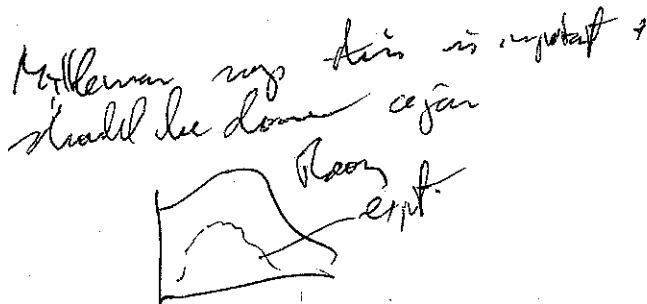 Mittleman says this is important +
should be done again
Theory
expt.